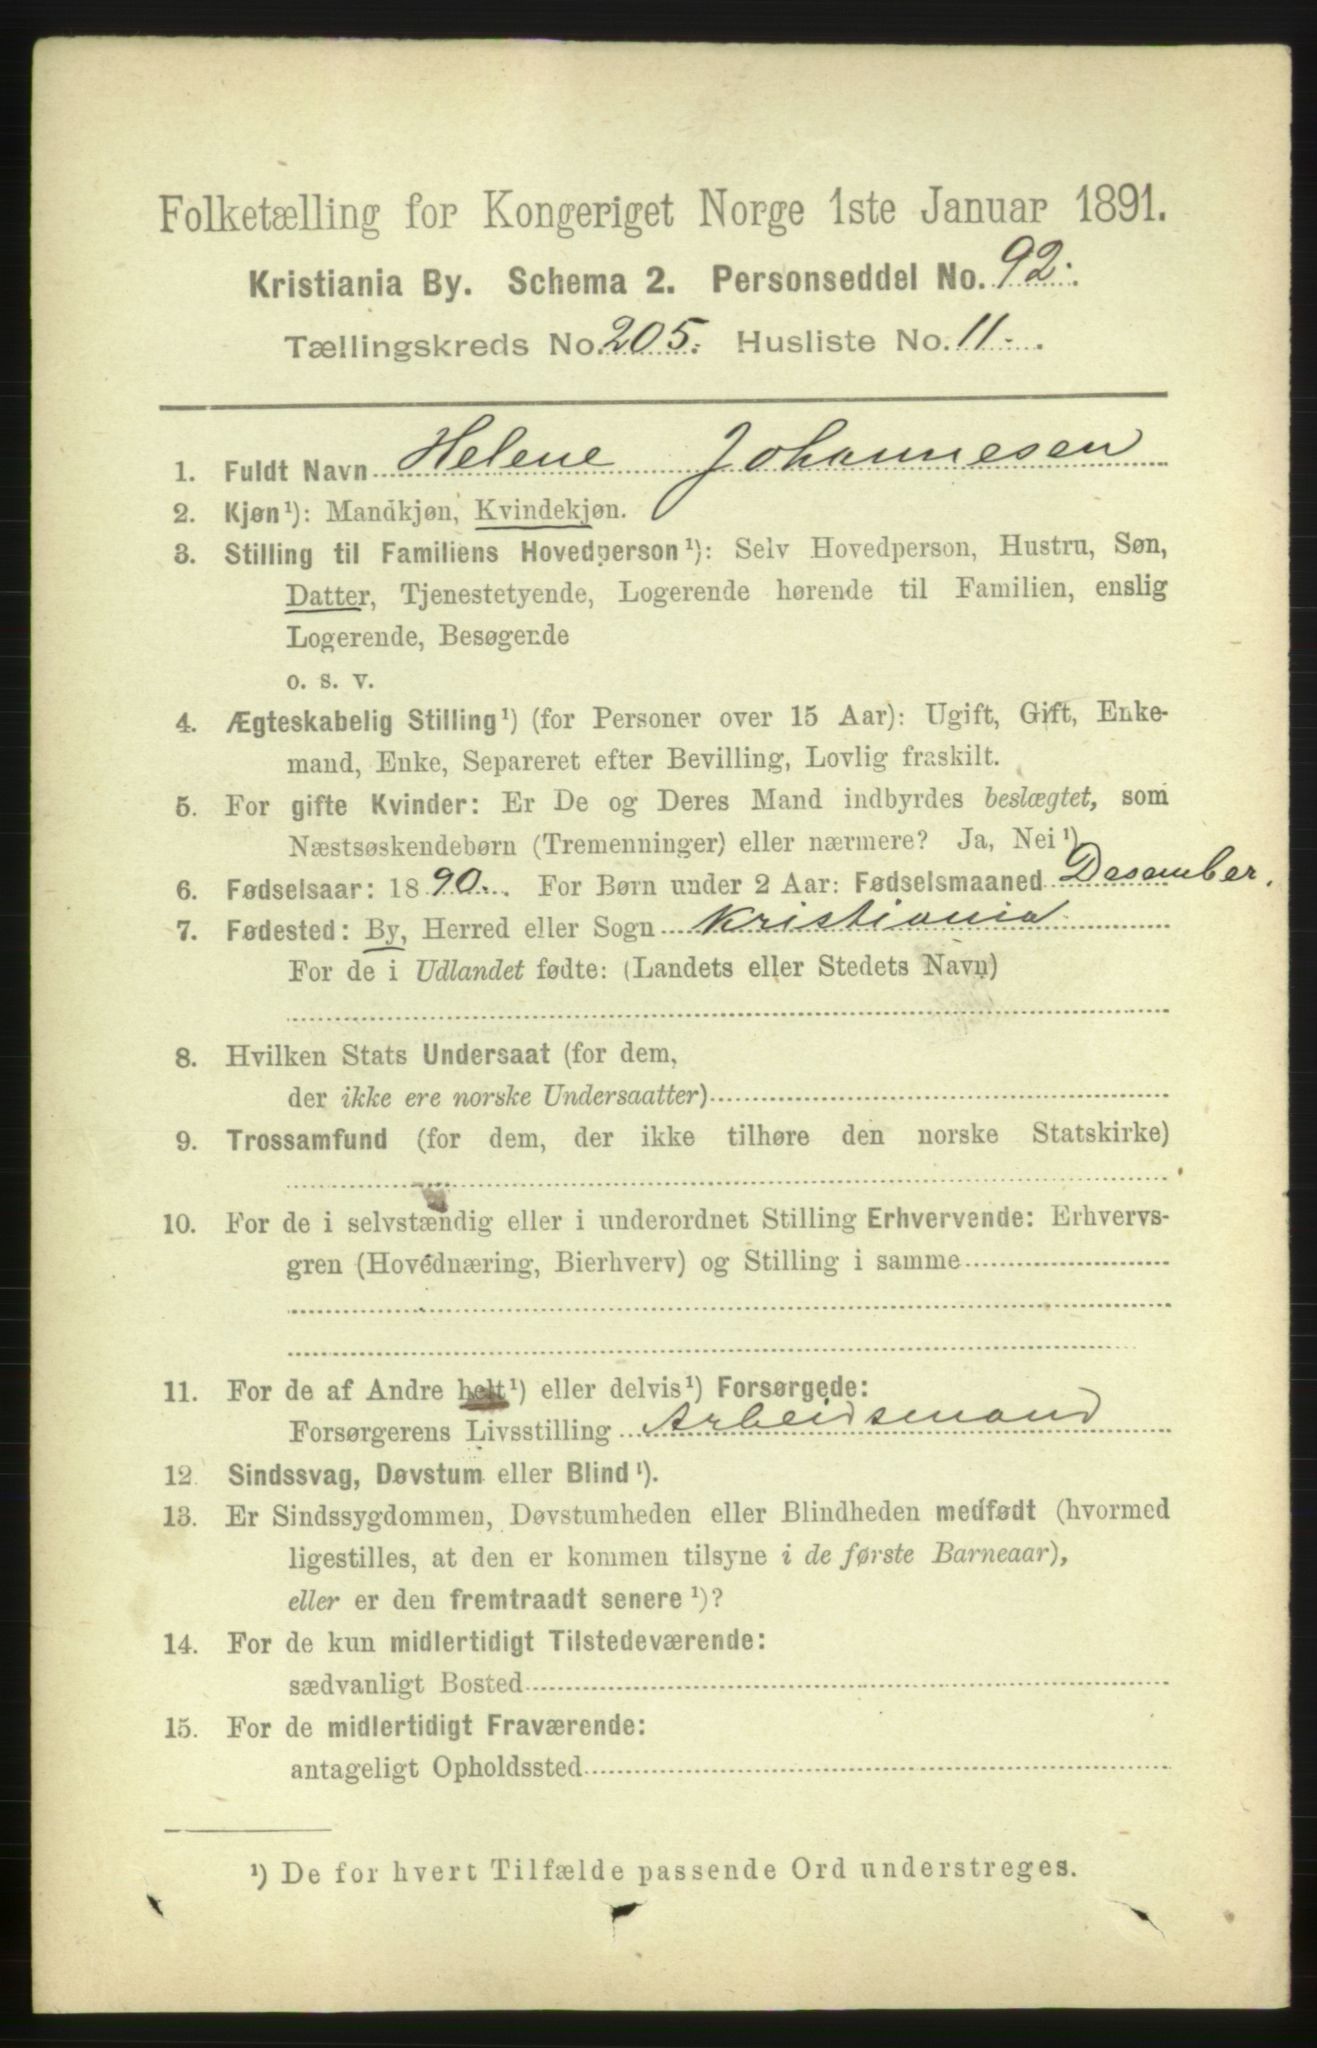 Folketælling for Kongeriget Norge 1ste Januar 1891.
Kristiania By. Schema 2. Personseddel No. 92.
Tællingskreds No. 205. Husliste No. 11.
1. Fuldt Navn Helene Johannesen
2. Kjøn¹): Mandkjøn, Kvindekjøn.
3. Stilling til Familiens Hovedperson¹): Selv Hovedperson, Hustru, Søn,
Datter, Tjenestetyende, Logerende hørende til Familien, enslig
Logerende, Besøgende
o. s. v.
4. Ægteskabelig Stilling¹) (for Personer over 15 Aar): Ugift, Gift, Enke-
mand, Enke, Separeret efter Bevilling, Lovlig fraskilt.
5. For gifte Kvinder: Er De og Deres Mand indbyrdes beslægtet, som
Næstsøskendebørn (Tremenninger) eller nærmere? Ja, Nei¹)
6. Fødselsaar: 1890. For Børn under 2 Aar: Fødselsmaaned Desember.
7. Fødested: By, Herred eller Sogn Kristiania
For de i Udlandet fødte: (Landets eller Stedets Navn)
8. Hvilken Stats Undersaat (for dem,
der ikke ere norske Undersaatter)
9. Trossamfund (for dem, der ikke tilhøre den norske Statskirke)
10. For de i selvstændig eller i underordnet Stilling Erhvervende: Erhvervs-
gren (Hovednæring, Bierhverv) og Stilling i samme
11. For de af Andre helt¹) eller delvis¹) Forsørgede:
Forsørgerens Livsstilling Arbeidsmand
12. Sindssvag, Døvstum eller Blind¹).
13. Er Sindssygdommen, Døvstumheden eller Blindheden medfødt (hvormed
ligestilles, at den er kommen tilsyne i de første Barneaar),
eller er den fremtraadt senere¹)?
14. For de kun midlertidigt Tilstedeværende:
sædvanligt Bosted
15. For de midlertidigt Fraværende:
antageligt Opholdssted
¹) De for hvert Tilfælde passende Ord understreges.